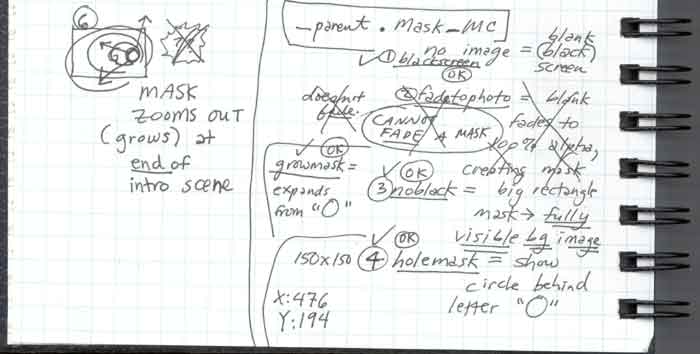 6
MASK
ZOOMS OUT
(grows) at
end of
intro scene
_parent.Mask_MC
no image = blank
(black)
screen
① blackscreen
OK
② fadetophoto = blank
fades to
100% alpha,
creating mask
doesnot
fade.
CANNOT
FADE A MASK
OK
growmask =
expands
from "O"
OK
③ noblack = big rectangle
mask → fully
visible bg image
OK
150x150 ④ holemask = show
circle behind
letter "O"
X:476
Y:194